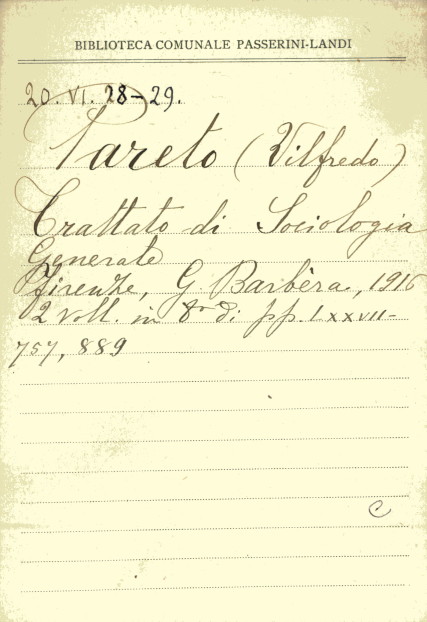 BIBLIOTECA COMUNALE PASSERINI-LANDI
20. VI. 28-29.
Pareto (Vilfredo)
Trattato di Sociologia
Generale
Firenze, G. Barbèra, 1916
2 voll. in 8º di pp. LXXVII-
757, 889
C